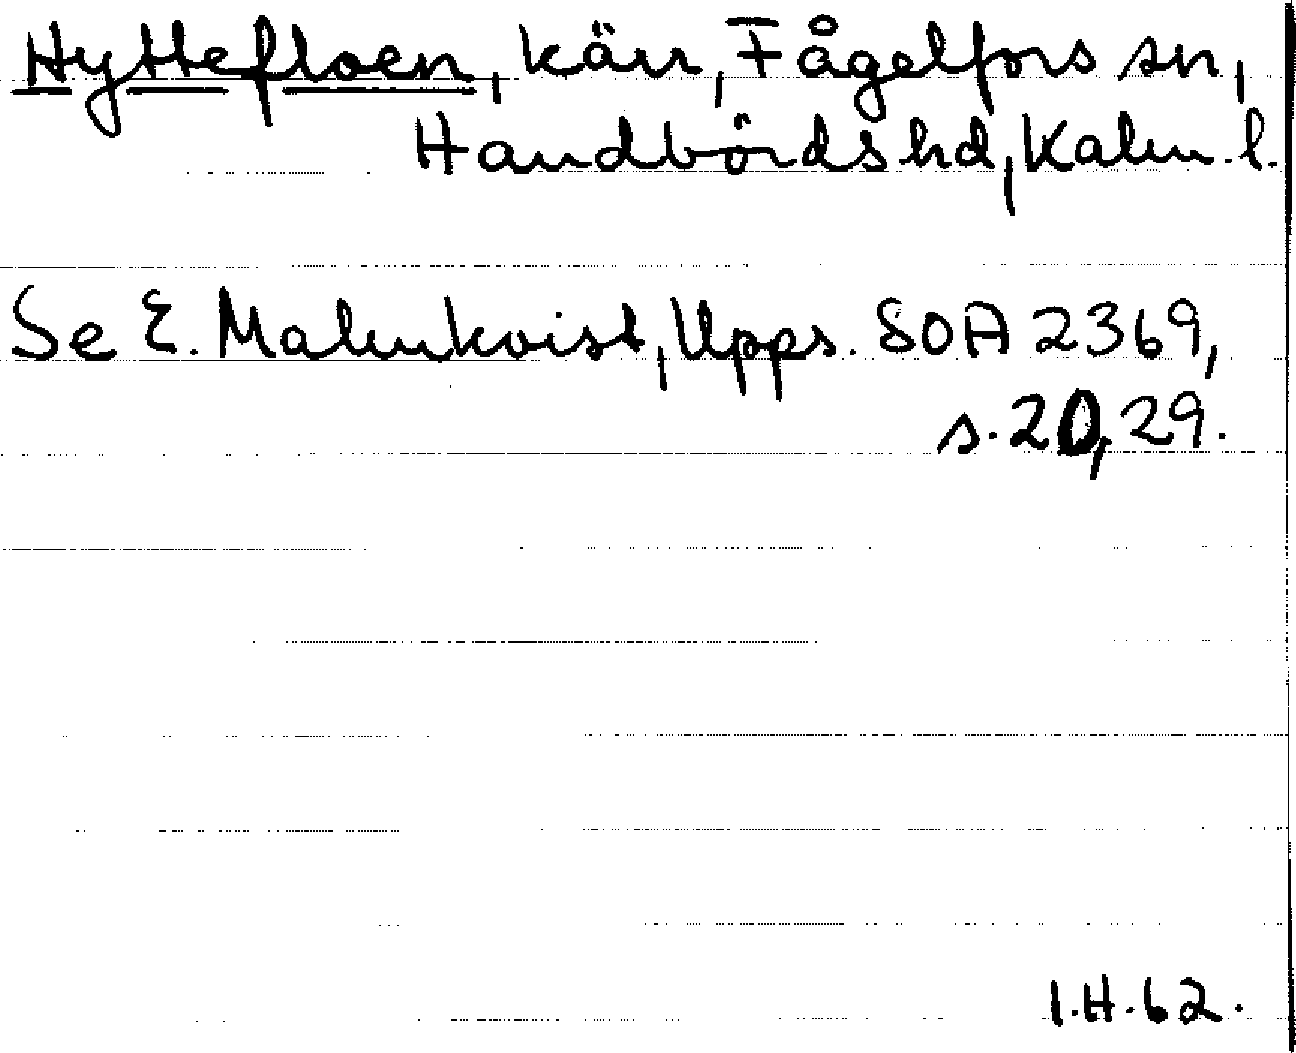 Hyttefloen, kärr, Fågelfors sn,
Handbörds hd, Kalm. l.
Se E. Malmkvist, Upps. SOA 2369,
s. 20, 29.
I.H. 62.